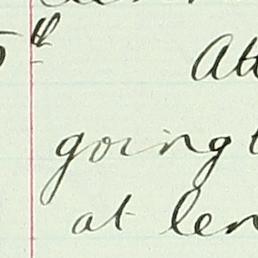 5th
At
going t
at len